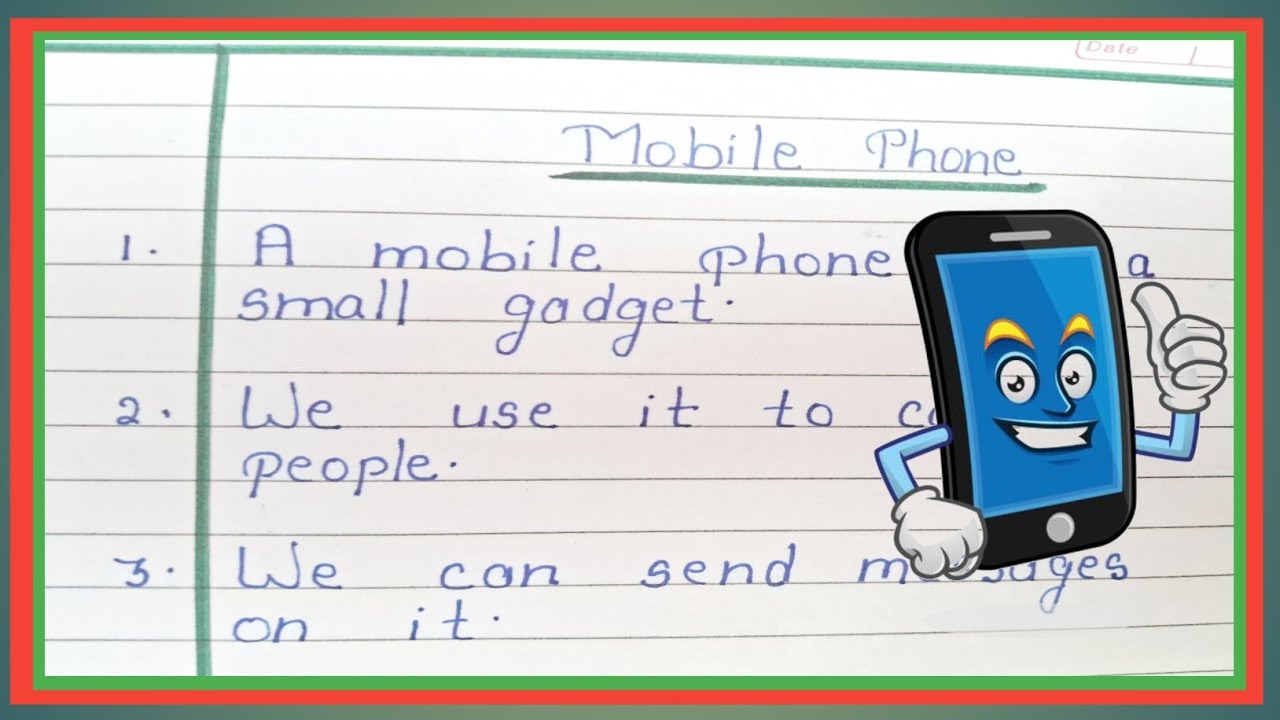 Date
Mobile Phone
1. A mobile phone a
small gadget.
2. We use it to
people.
3. We can send messages
on it.